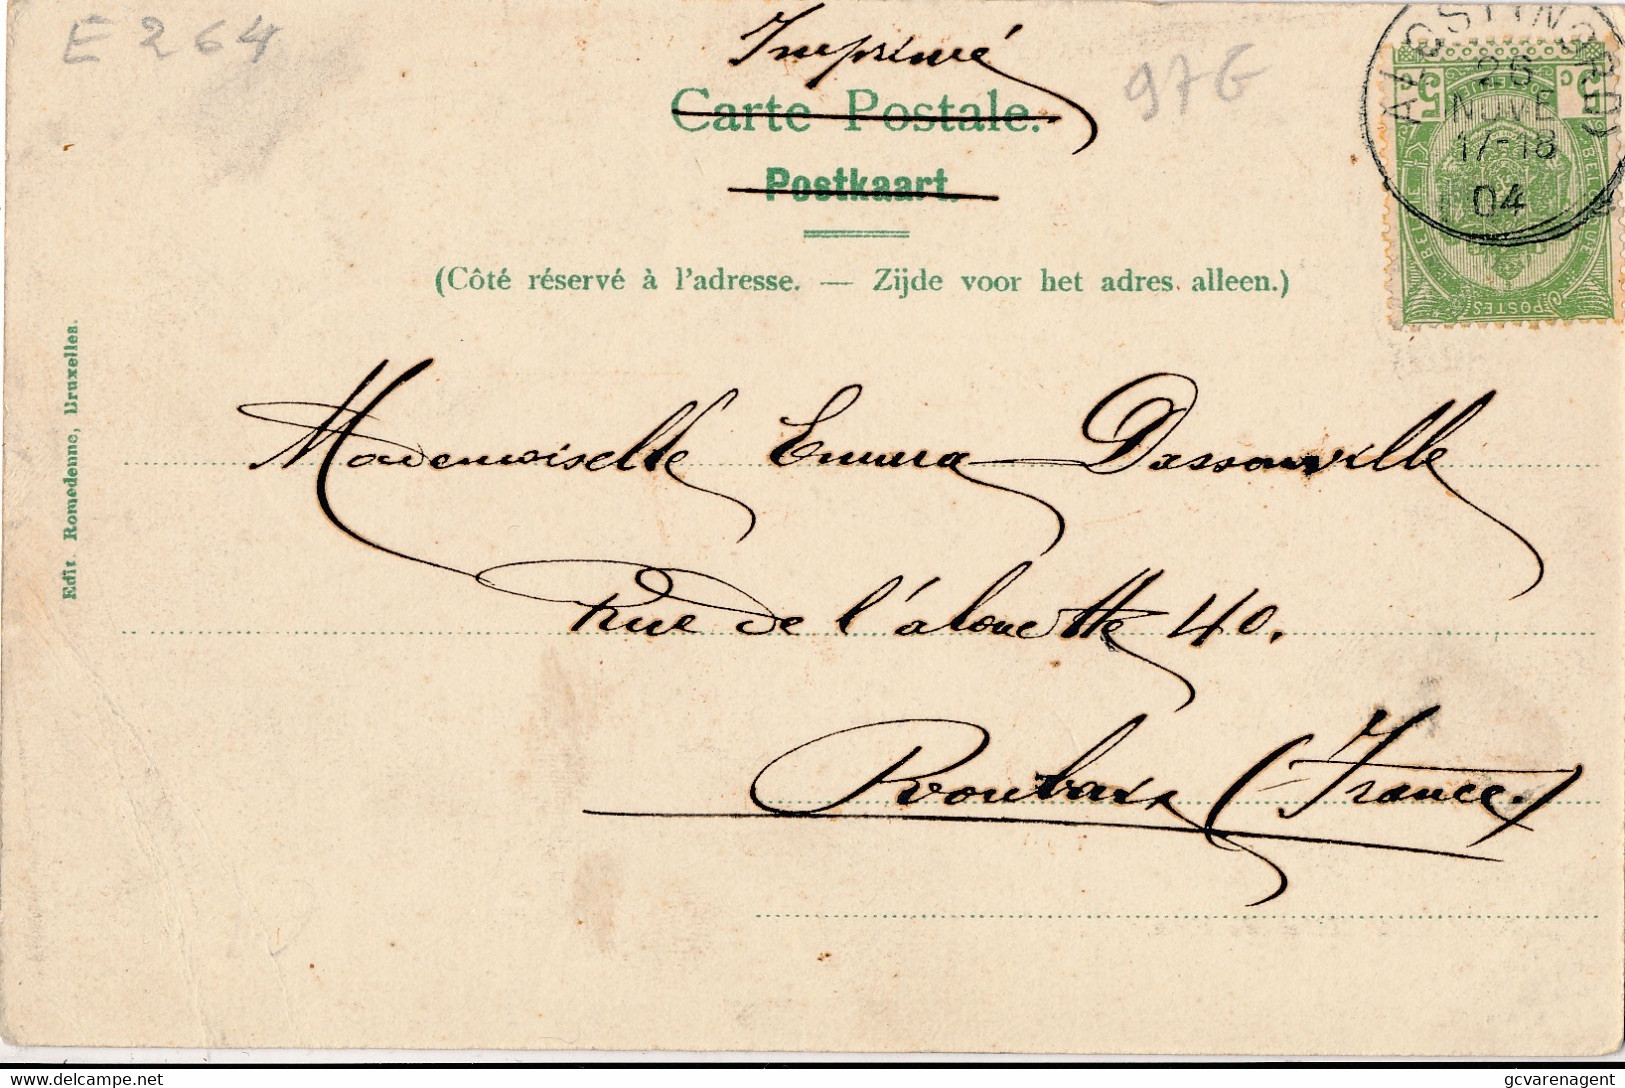 E 264
Imprimé
97G
Carte Postale.
Postkaart.
(Côté réservé à l'adresse. — Zijde voor het adres alleen.)
Edit Romedenne, Bruxelles.
Mademoiselle Emma Dassonville
Rue de l'alouette 40.
Roubaix (France.)
NOVE
17-18
04
5 5
POSTES
gcvarenagent.delcampe.net